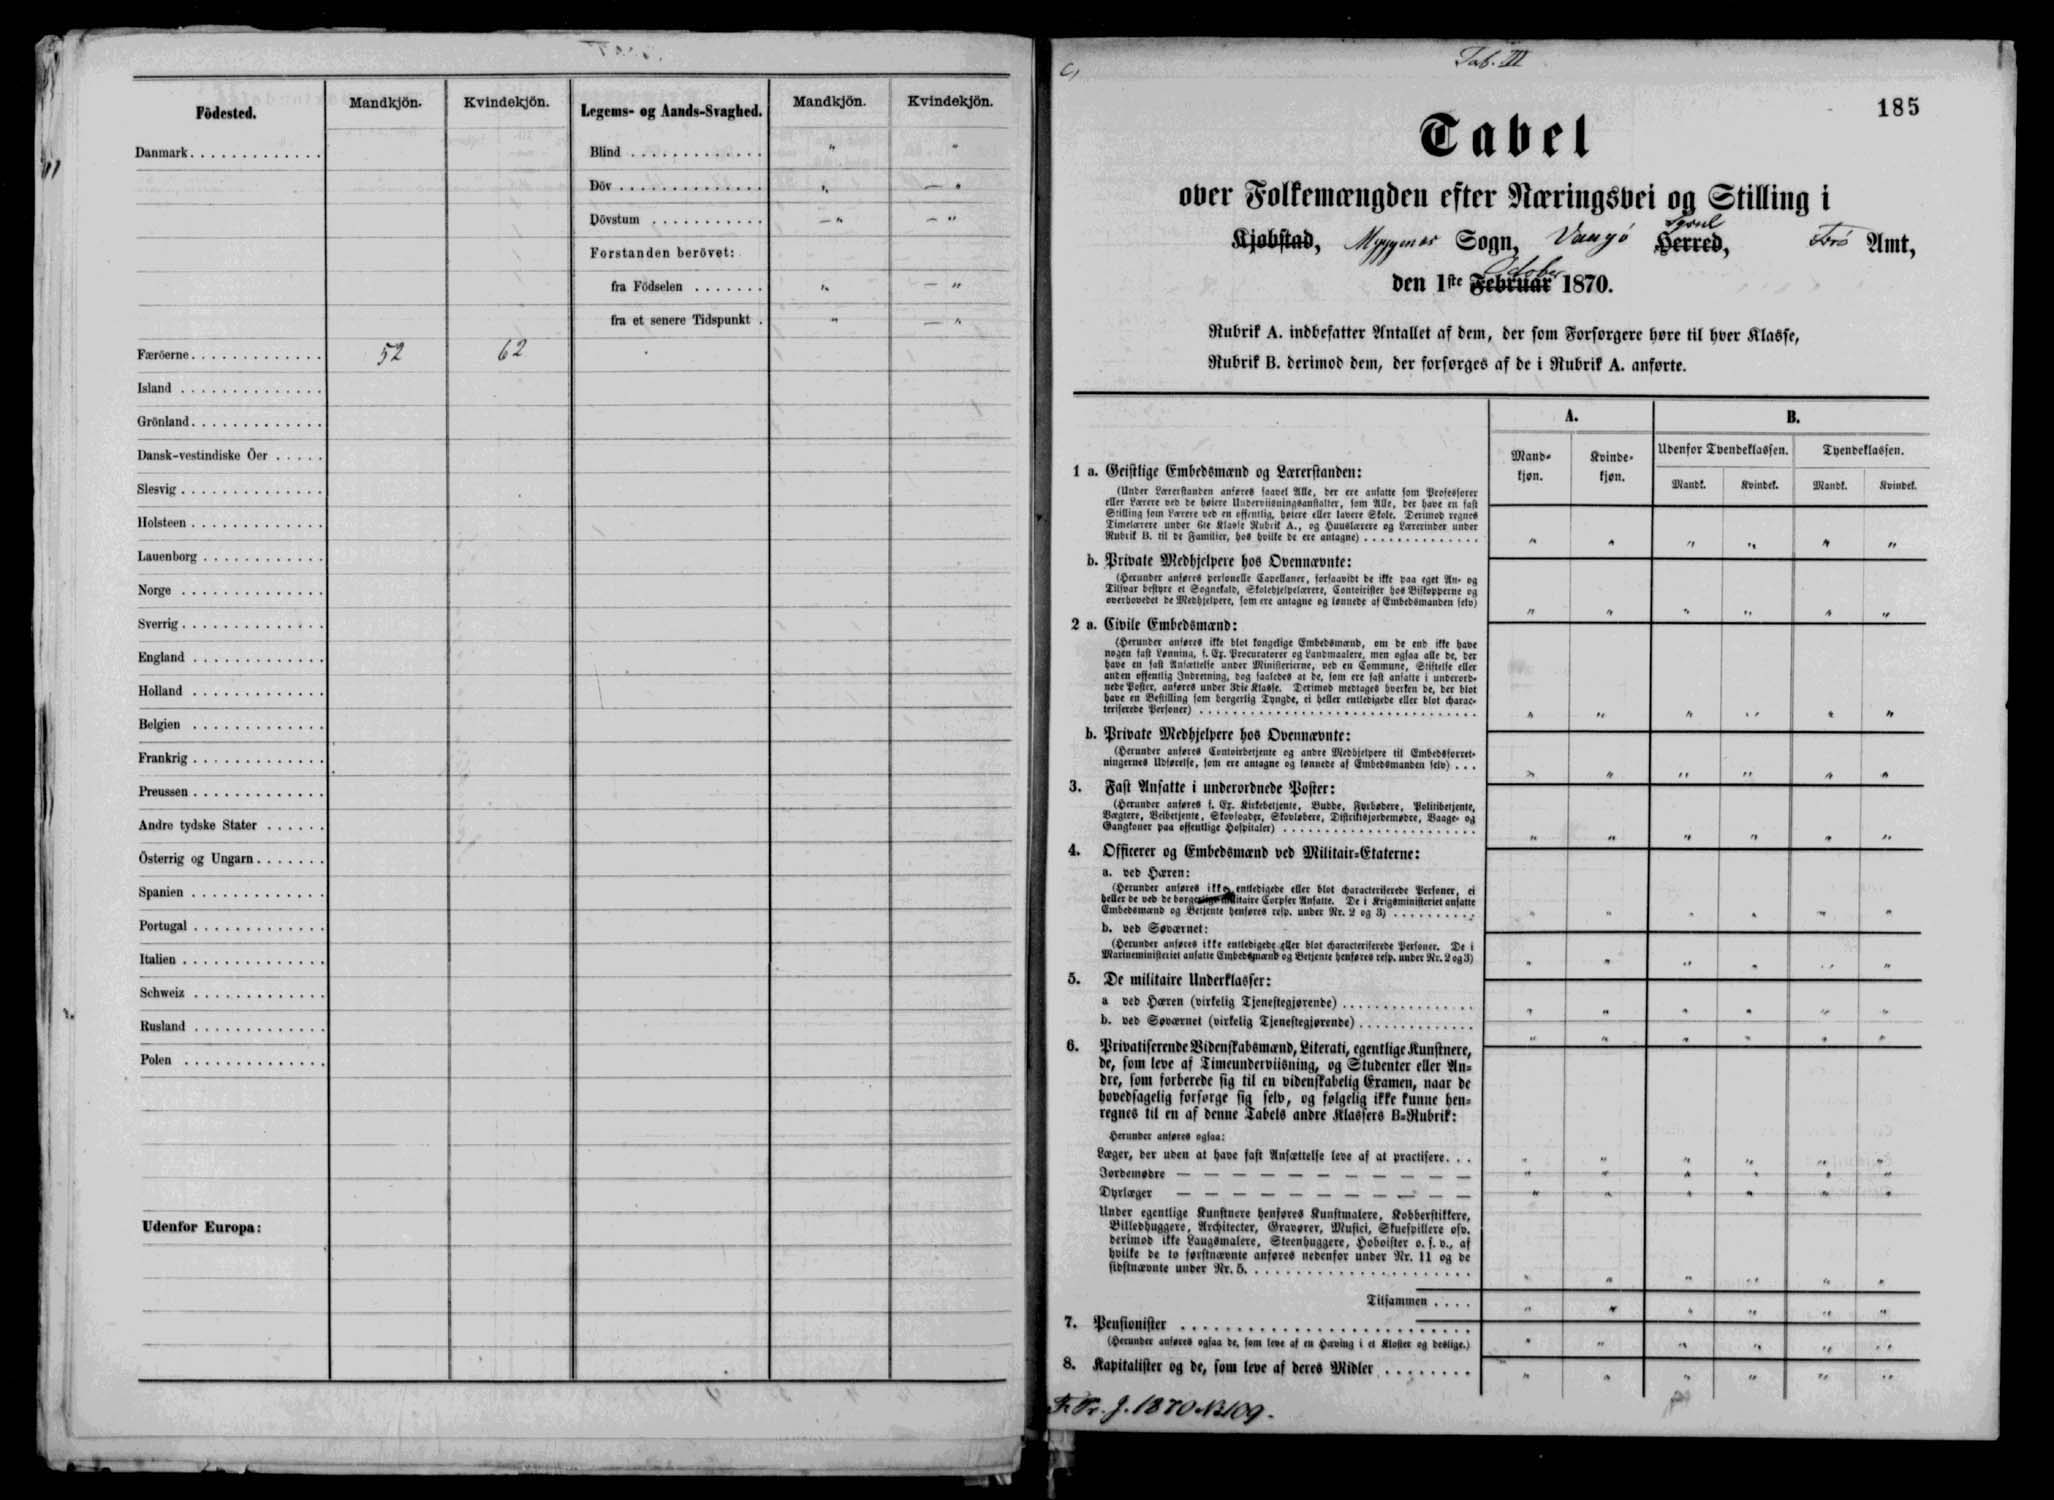 Födested. Mandkjön. Kvindekjön. Legems- og Aands-Svaghed. Mandkjön. Kvindekjön.
Danmark . . . . . . . . . . . . . Blind . . . . . . . . . . . . . " "
Döv . . . . . . . . . . . . . . " — "
Dövstum . . . . . . . . . . . — " — "
Forstanden berövet:
fra Födselen . . . . . . . " — "
fra et senere Tidspunkt . " — "
Færöerne . . . . . . . . . . . . . 52 62
Island . . . . . . . . . . . . . .
Grönland . . . . . . . . . . . . .
Dansk-vestindiske Öer . . . . .
Slesvig . . . . . . . . . . . . . .
Holsteen . . . . . . . . . . . . .
Lauenborg . . . . . . . . . . . .
Norge . . . . . . . . . . . . . .
Sverrig . . . . . . . . . . . . . .
England . . . . . . . . . . . . .
Holland . . . . . . . . . . . . .
Belgien . . . . . . . . . . . . .
Frankrig . . . . . . . . . . . . .
Preussen . . . . . . . . . . . . .
Andre tydske Stater . . . . . .
Österrig og Ungarn . . . . . . .
Spanien . . . . . . . . . . . . .
Portugal . . . . . . . . . . . . .
Italien . . . . . . . . . . . . . .
Schweiz . . . . . . . . . . . . .
Rusland . . . . . . . . . . . . .
Polen . . . . . . . . . . . . . .
Udenfor Europa:
Tab. III
185
Tabel
over Folkemængden efter Næringsvei og Stilling i
Kjøbstad, Myggenæs Sogn, Vaagø Herred, Syssel Færø Amt,
den 1ste Februar October 1870.
Rubrik A. indbefatter Antallet af dem, der som Forsørgere høre til hver Klasse,
Rubrik B. derimod dem, der forsørges af de i Rubrik A. anførte.
A. B.
Mandkjøn. Kvindekjøn. Udenfor Tyendeklassen. Tyendeklassen.
Mandk. Kvindek. Mandk. Kvindek.
1 a. Geistlige Embedsmænd og Lærerstanden:
(Under Lærerstanden anføres saavel Alle, der ere ansatte som Professorer
eller Lærere ved de høiere Underviisningsanstalter, som Alle, der have en fast
Stilling som Lærere ved en offentlig, høiere eller lavere Skole. Derimod regnes
Timelærere under 6te Klasse Rubrik A., og Huuslærere og Lærerinder under
Rubrik B. til de Familier, hos hvilke de ere antagne) . . . . . . . . . . . . . . " " " " " "
b. Private Medhjelpere hos Ovennævnte:
(Herunder anføres personelle Capellaner, forsaavidt de ikke paa eget An- og
Tilsvar bestyre et Sognekald, Skolehjelpelærere, Contoirister hos Biskopperne og
overhovedet de Medhjelpere, som ere antagne og lønnede af Embedsmanden selv) " " " " " "
2 a. Civile Embedsmænd:
(Herunder anføres ikke blot kongelige Embedsmænd, om de end ikke have
nogen fast Lønning, f. Ex. Procuratorer og Landmaalere, men ogsaa alle de, der
have en fast Ansættelse under Ministerierne, ved en Commune, Stiftelse eller
anden offentlig Indretning, dog saaledes at de, som ere fast ansatte i underord-
nede Poster, anføres under 3die Klasse. Derimod medtages hverken de, der blot
have en Bestilling som borgerlig Tyngde, ei heller entledigede eller blot charac-
teriserede Personer) . . . . . . . . . . . . . . . . . . . . . . . . . . . . . " " " " " "
b. Private Medhjelpere hos Ovennævnte:
(Herunder anføres Contoirbetjente og andre Medhjelpere til Embedsforret-
ningernes Udførelse, som ere antagne og lønnede af Embedsmanden selv) . . . " " " " " "
3. Fast Ansatte i underordnede Poster:
(Herunder anføres f. Ex. Kirkebetjente, Budde, Fyrbødere, Politibetjente,
Vægtere, Veibetjente, Skovfogder, Skovløbere, Distriktsjordemødre, Vaage- og
Gangkoner paa offentlige Hospitaler) . . . . . . . . . . . . . . . . . . . . . . " " " " " "
4. Officerer og Embedsmænd ved Militair-Etaterne:
a. ved Hæren:
(Herunder anføres ikke entledigede eller blot characteriserede Personer, ei
heller de ved de borgerlige militaire Corpser Ansatte. De i Krigsministeriet ansatte
Embedsmænd og Betjente henføres resp. under Nr. 2 og 3) . . . . . . . . . . " " " " " "
b. ved Søværnet:
(Herunder anføres ikke entledigede eller blot characteriserede Personer. De i
Marineministeriet ansatte Embedsmænd og Betjente henføres resp. under Nr. 2 og 3) " " " " " "
5. De militaire Underklasser:
a ved Hæren (virkelig Tjenestegjørende) . . . . . . . . . . . . . . . " " " " " "
b. ved Søværnet (virkelig Tjenestegjørende) . . . . . . . . . . . . . " " " " " "
6. Privatiserende Videnskabsmænd, Literati, egentlige Kunstnere,
de, som leve af Timeunderviisning, og Studenter eller An-
dre, som forberede sig til en videnskabelig Examen, naar de
hovedsagelig forsørge sig selv, og følgelig ikke kunne hen-
regnes til en af denne Tabels andre Klassers B-Rubrik:
Herunder anføres ogsaa:
Læger, der uden at have fast Ansættelse leve af at practisere . . . " " " " " "
Jordemødre — — — — — — — — — — " " " " " "
Dyrlæger — — — — — — — — — — " " " " " "
Under egentlige Kunstnere henføres Kunstmalere, Kobberstikkere,
Billedhuggere, Architecter, Gravører, Musici, Skuespillere osv.
derimod ikke Laugsmalere, Steenhuggere, Hoboister o. s. v., af
hvilke de to førstnævnte anføres nedenfor under Nr. 11 og de
sidstnævnte under Nr. 5. . . . . . . . . . . . . . . . . . . . . . . " " " " " "
Tilsammen . . . . " " " " " "
7. Pensionister . . . . . . . . . . . . . . . . . . . . . . . . . .
(Herunder anføres ogsaa de, som leve af en Hæving i et Kloster og deslige.) " " " " " "
8. Kapitalister og de, som leve af deres Midler . . . . . . . . " " " " " "
F. Pr. J. 1870 No 109.